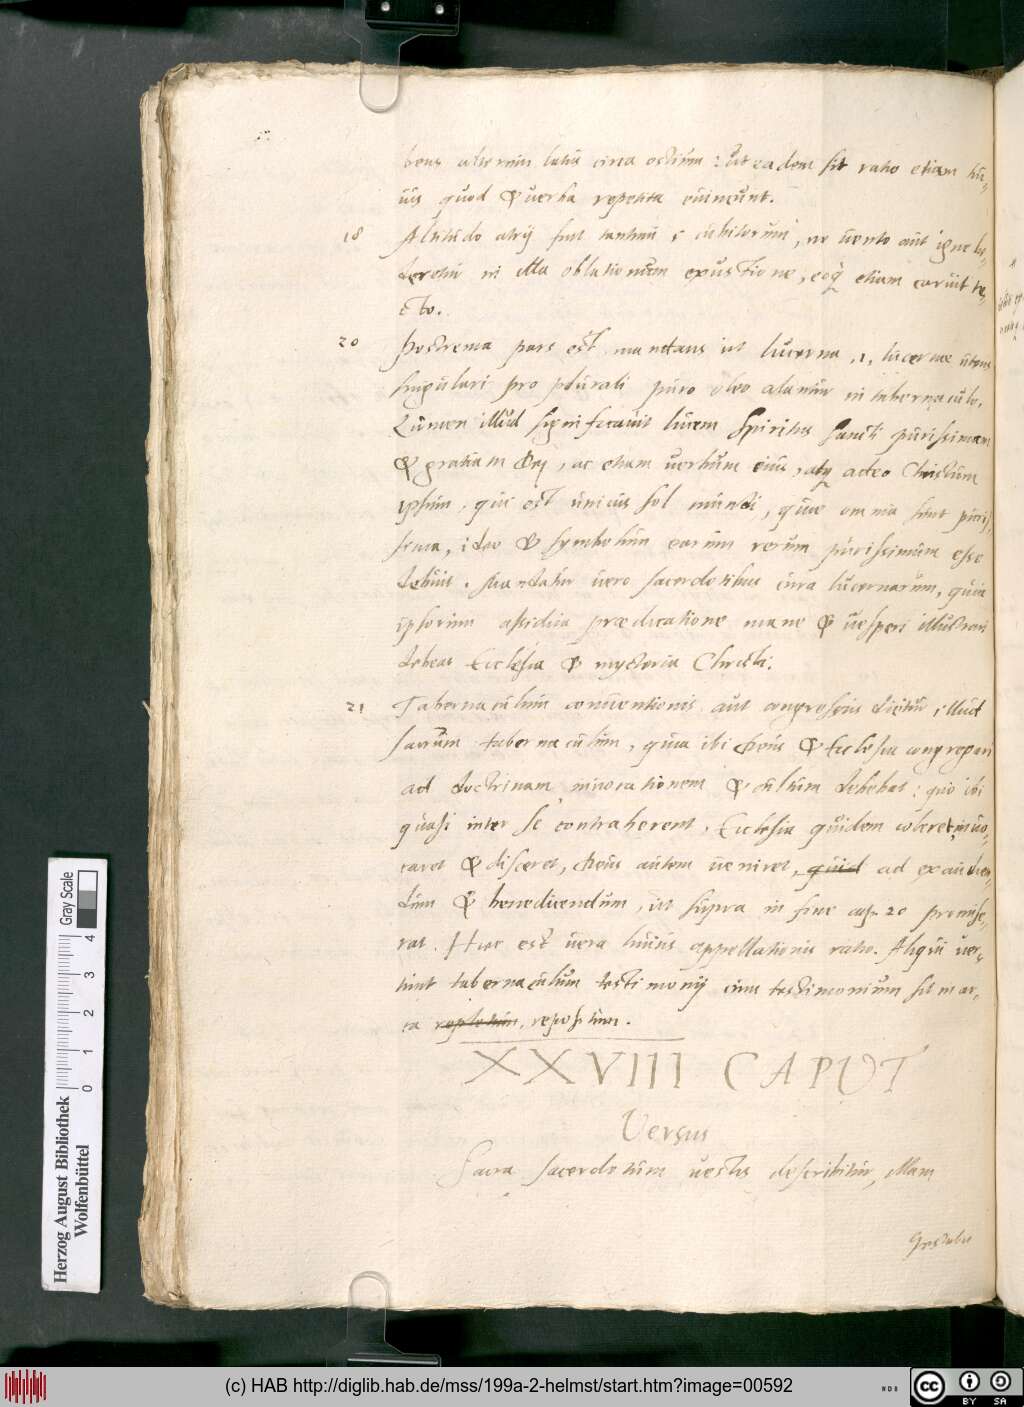 bens alterum latus circa ostium: ut eadem sit ratio etiam hu-
ius quod & verba repetita evincunt.
18 Altitudo atrij fuit tantum 5 cubitorum, ne vento aut igne lę-
deretur in illa oblationum exustione, eoq̃ etiam caruit te-
cto.
20 Postrema pars est mandans ut lucerna .i. lucernae utens
singulari pro plurali puro oleo alantur in tabernaculo.
Lumen illud significavit lucem Spiritus Sancti purissimam
& gratiam Dei, ac etiam verbum eius, atq̃ adeo Christum
ipsum, qui est unicus sol mundi, quae omnia sunt puris-
sima, ideo & symbolum earum rerum purissimum esse
debuit. Mandatur vero sacerdotibus cura lucernarum, quia
ipsorum assidua praedicatione mane & vesperi illustrari
debeat Ecclesia & mysteria Christi.
21 Tabernaculum conventionis aut congressus dicitur illud
sacrum tabernaculum, quia ibi Deus & Ecclesia congregari
ad doctrinam invocationem & cultum debebat: quo ibi
quasi inter se contraherent, Ecclesia quidem coleret, invo-
caret & disceret, Deus autem veniret, quid ad exaudien-
dum & benedicendum, ut supra in fine cap. 20 promise-
rat. Haec est vera huius appellationis ratio. Aliqui ver-
tunt tabernaculum testimonij cum testimonium sit in ar-
ca repletum, repositum.
XXVIII CAPUT
Versus
Sacra sacerdotum vestis describitur, illam
Gray Scale
4
3
2
1
0
Herzog August Bibliothek
Wolfenbüttel
(c) HAB http://diglib.hab.de/mss/199a-2-helmst/start.htm?image=00592
cc BY SA